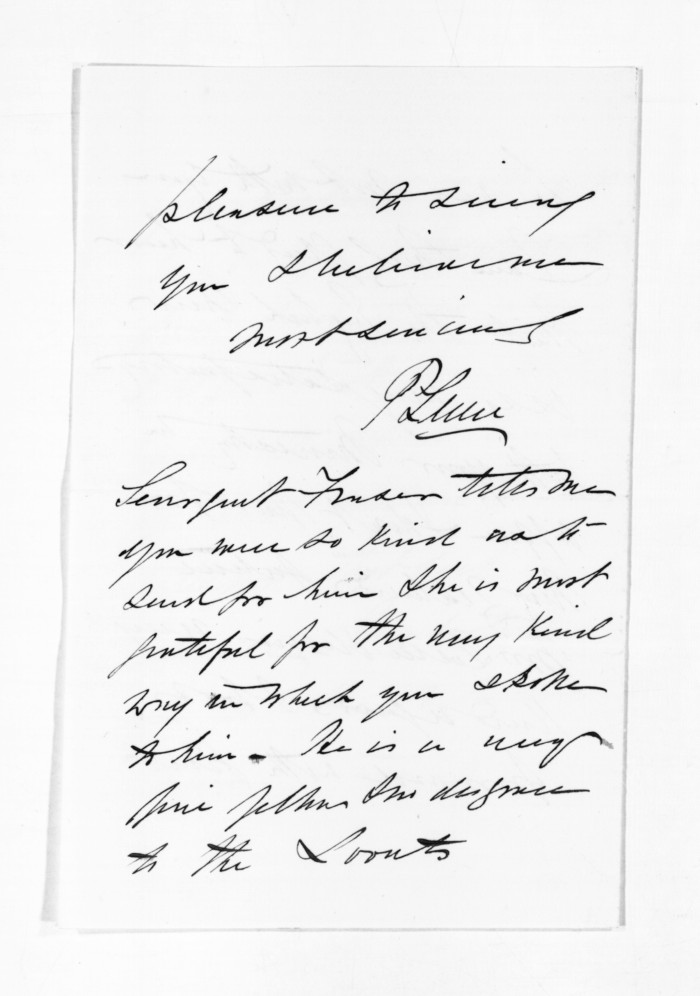 pleasure to seeing
you & believe me
most sincerely
Sergeant Fraser tells me
you were so kind as to
send for him & he is most
grateful for the very kind
way in which you spoke
to him - He is a very
fine fellow & no disgrace
to the Scouts